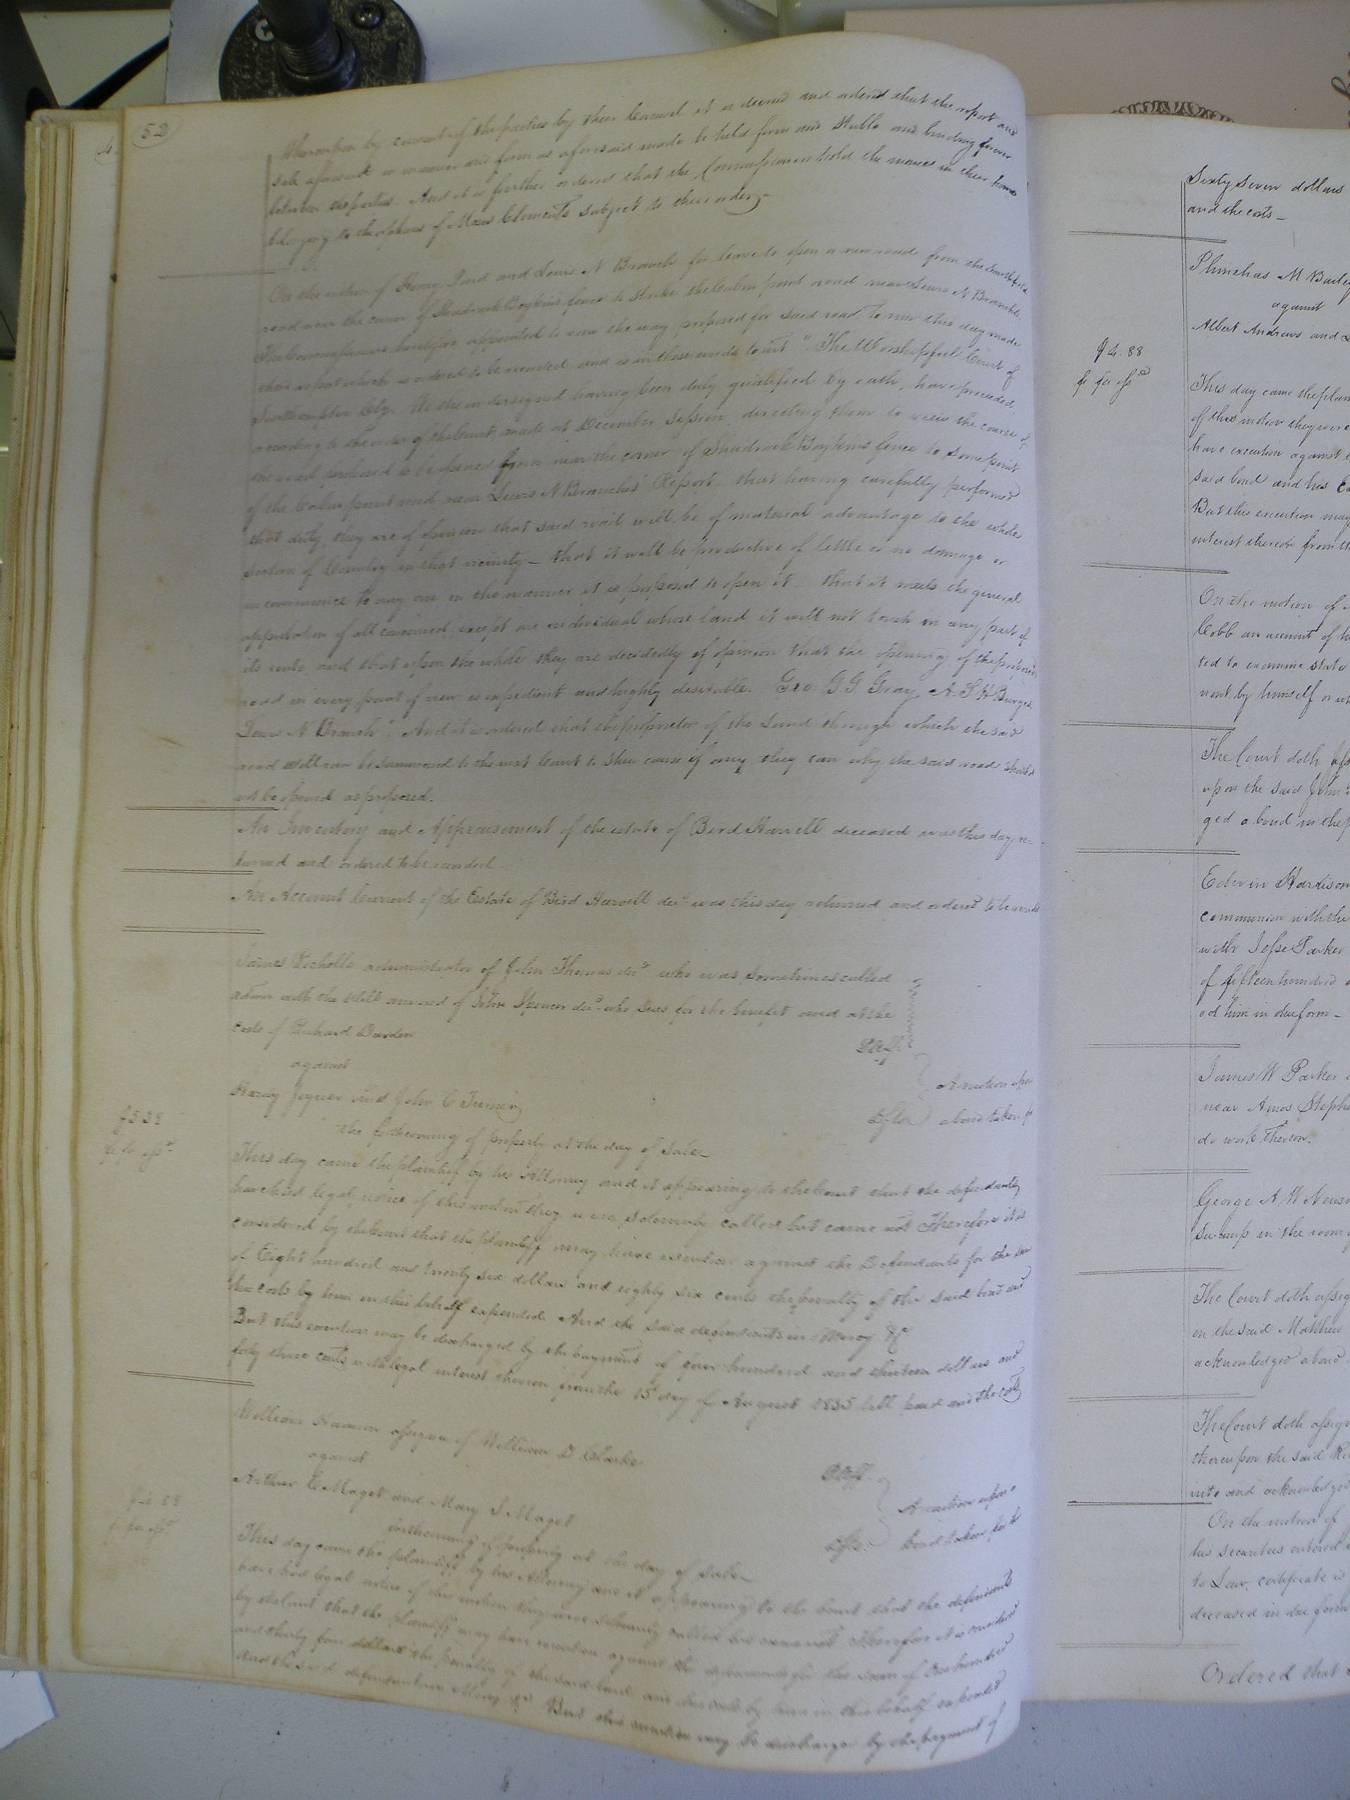 52
Thereupon by consent of the parties by their Counsel it is decreed and ordered that the report and
sale aforesaid in manner and form as aforesaid made be held firm and stable and binding forever
between the parties. And it is further ordered that the Commissioners hold the monies in their hands
belonging to the orphans of Clements subject to their order.
On the motion of Henry and Lewis N Branch for leave to open a new road from the
road near the corner of Shadrack Boykins fence to strike the Cabin point road near Lewis N Branchs
The Commissioners heretofore appointed to view the way proposed for said road, to now this day made
their report which is ordered to be recorded and is in these words to wit "The Worshipful Court of
Southampton Cty. We the undersigned having been duly qualified by oath, have proceeded
according to the order of the Court made at December Session, directing them to view the course of
the road proposed to be opened from near the corner of Shadrack Boykins fence to some point
of the Cabin point road near Lewis N Branches' Report - that having carefully performed
that duty, they are of opinion that said road will be of material advantage to the whole
portion of Country in that vicinity - that it will be productive of little or no damage or
inconvenience to any one in the manner it is proposed to open it - that it meets the general
approbation of all concerned, except one individual whose land it will not touch in any part of
its route and that upon the whole they are decidedly of opinion that the opening of the proposed
road in every point of view is expedient and highly desirable. Geo. G. G Gray, A. S. H Burges
Lewis N Branch". And it is ordered that the proprietor of the Land through which the said
road will run be summoned to the next Court to shew cause if any they can why the said road should
not be opened as proposed.
An Inventory and Appraisement of the estate of Bird Harwell deceased was this day re-
turned and ordered to be recorded
An Account Current of the Estate of Bird Harwell decd was this day returned and ordered to be recorded
James Rochelle administrator of John Thomas decd who was sometimes called
admr with the will annexed of John Spencer decd who sues for the benefit and at the
costs of Richard Darden
Pltff
against
A motion upon
Hardy Joyner and John C Turner
Dfts
a bond taken for
the forthcoming of property at the day of Sale
This day came the plaintiff by his Attorney and it appearing to the Court that the defendants
have had legal notice of this motion they were solemnly called but came not Therefore it is
considered by the Court that the plaintiff may have execution against the Defendants for the sum
of Eight hundred and twenty six dollars and eighty six cents the penalty of the said bond and
his costs by him in this behalf expended And the said defendants in Mercy &c
But this execution may be discharged by the payment of four hundred and thirteen dollars and
forty three cents with legal interest thereon from the 15 day of August 1835 till paid and the costs
William assignee of William D Clarke
Pltff
against
A motion upon a
Arthur C Maget and Mary S Maget
Dfts
bond taken for the
forthcoming of property at the day of Sale
This day came the plaintiff by his Attorney and it appearing to the Court that the defendants
have had legal notice of this motion they were solemnly called but came not Therefore it is considered
by the Court that the plaintiff may have execution against the defendants for the sum of One hundred
and thirty four dollars the penalty of the said bond and his costs by him in this behalf expended
And the said defendants in Mercy &c But this execution may be discharged by the payment of
Sixty Seven dollars
and the costs
Phinehas M Bailey
against
Albert Andrews and
94. 88
fi fa issd
This day came the plain
of this motion they were
have execution against
said bond and his
But this execution may
interest thereon from th
On the motion of
Cobb an account of h
ted to examine state
ment by himself or
The Court doth
upon the said John
ged a bond in the p
Edwin Hardison
communion with the
with Jesse Parker
of fifteen hundred
ed him in due form
James W Parker
near Amos Steph
do work thereon.
George A. W News
swamp in the room
The Court doth assig
on the said Matthew
acknowledged a bond
The Court doth assig
thereupon the said
into and acknowledged
On the motion of
his securities entered
to Law, certificate is
deceased in due form
Ordered that